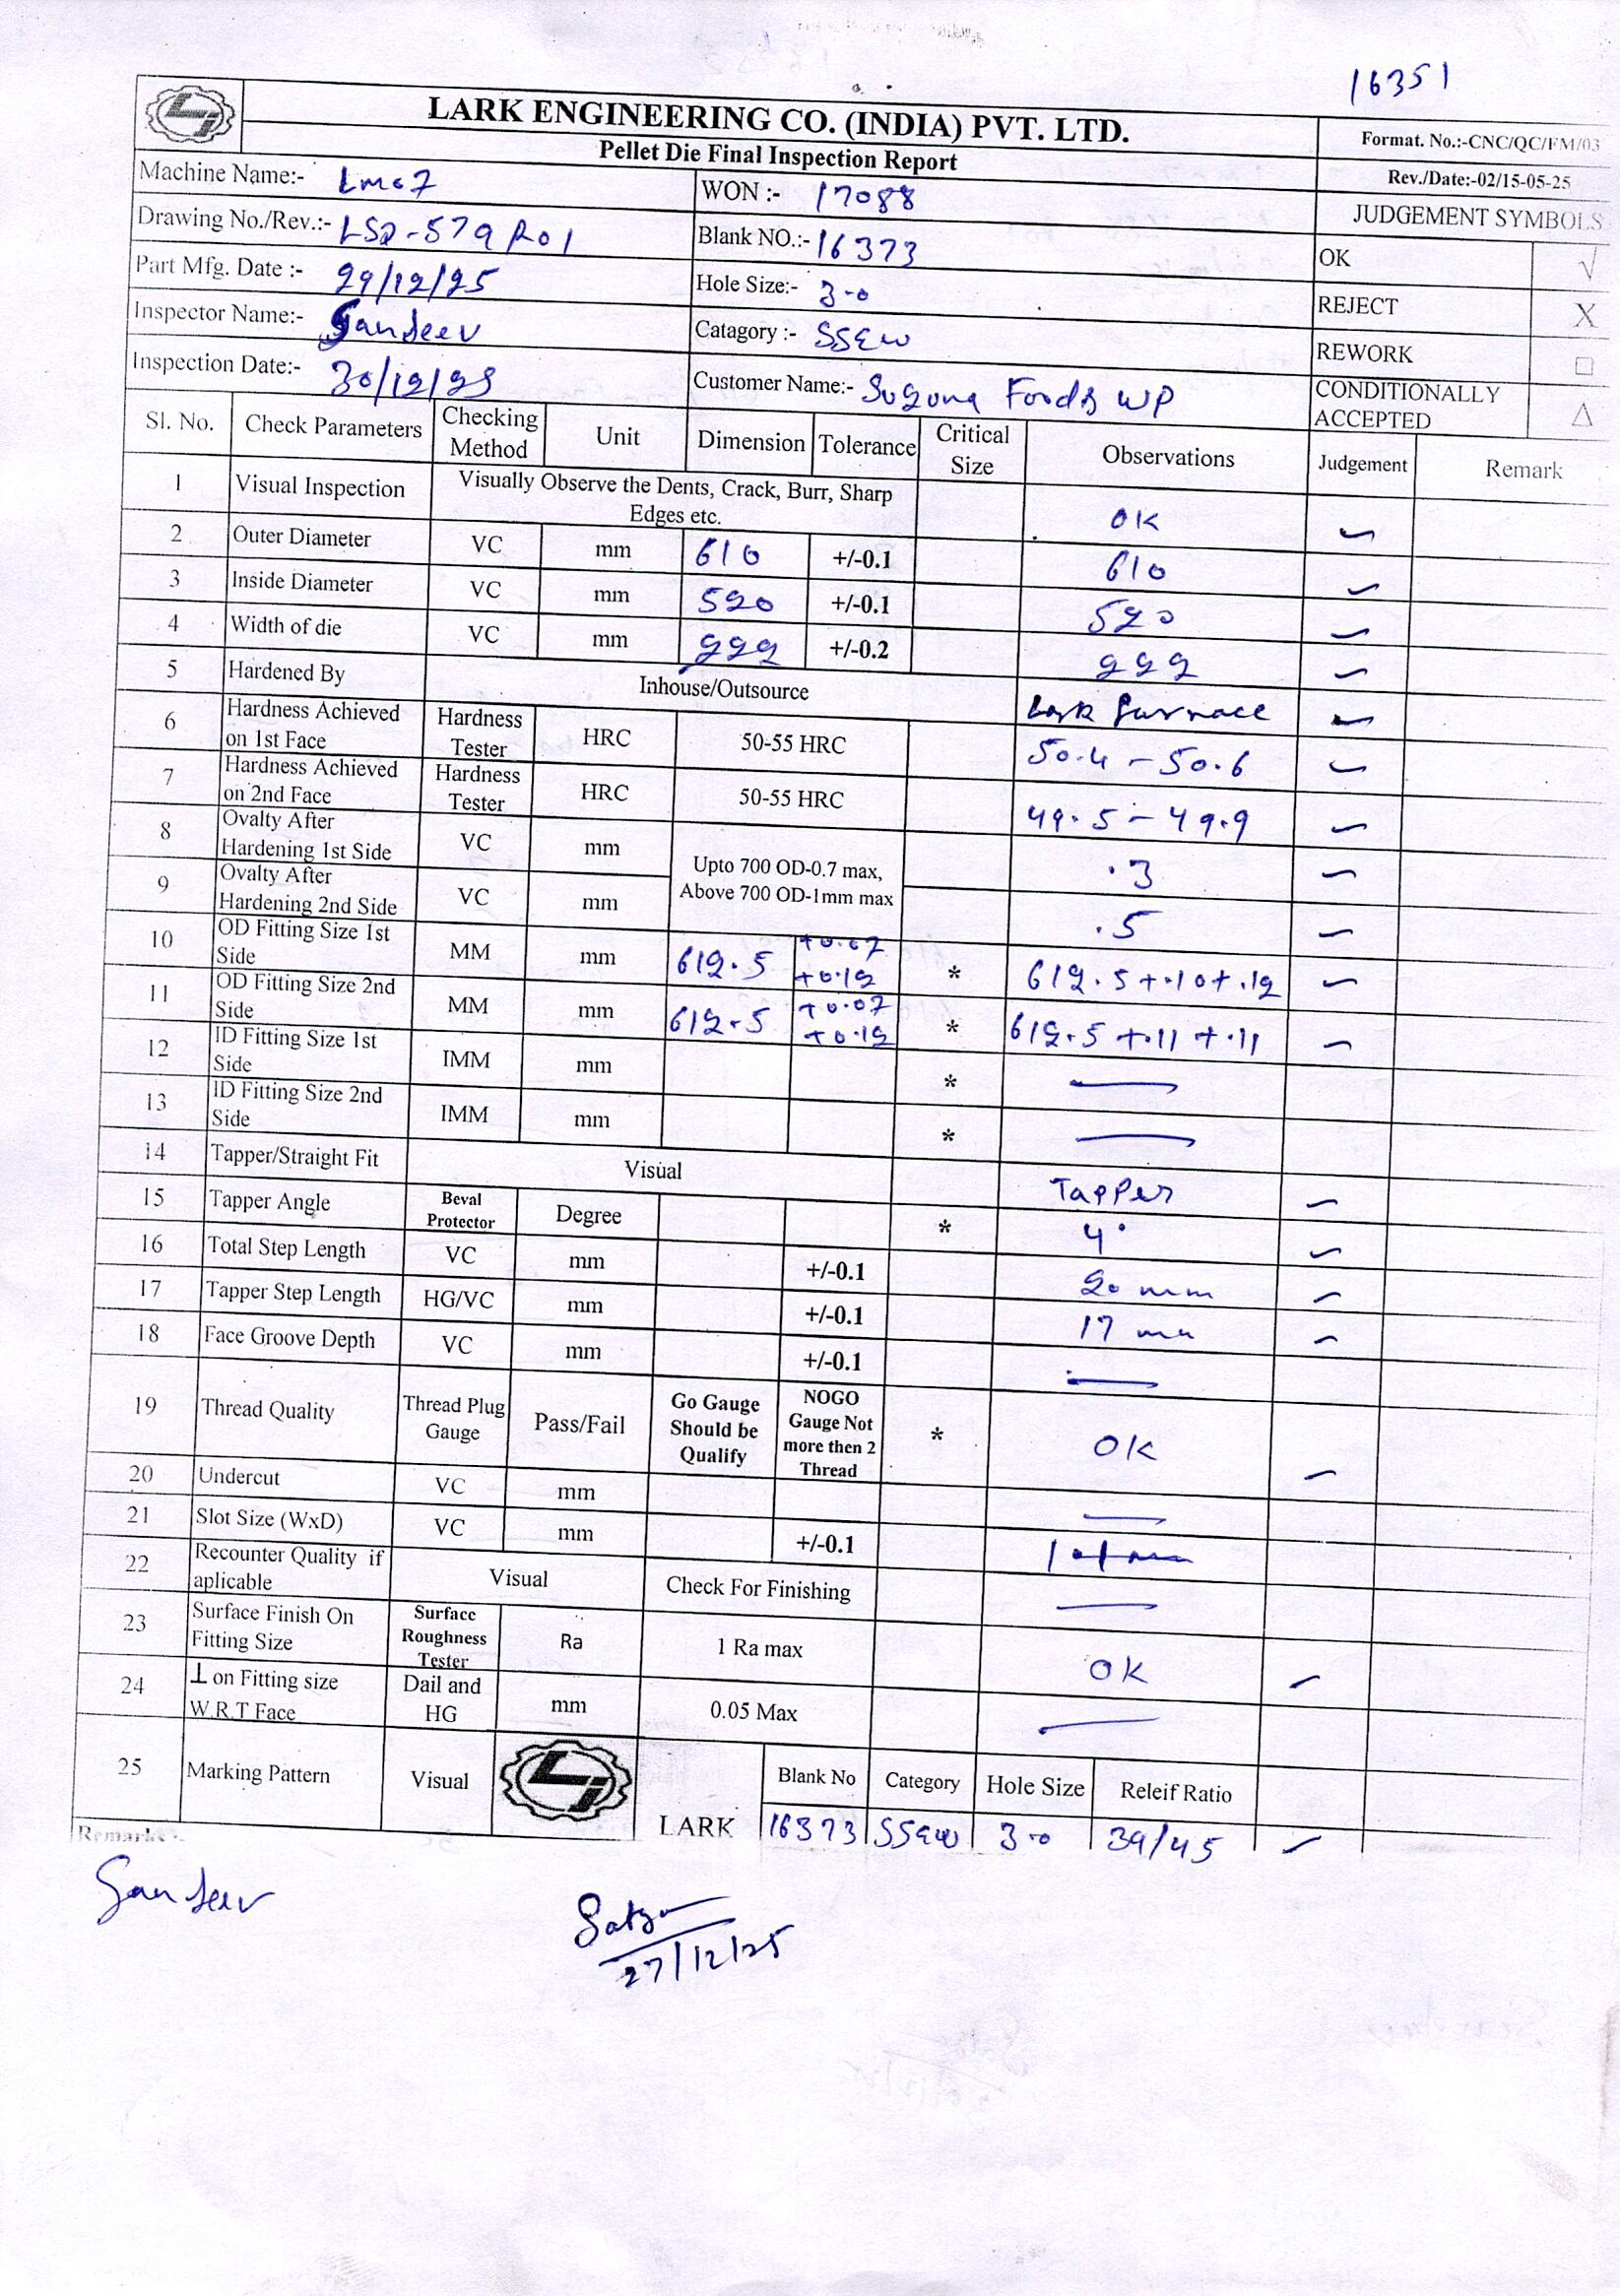 16351
LARK ENGINEERING CO. (INDIA) PVT. LTD.
Pellet Die Final Inspection Report
Format. No.:-CNC/QC/FM/03
Rev./Date:-02/15-05-25
Machine Name:- Lmc7
WON :- 17088
JUDGEMENT SYMBOLS
Drawing No./Rev.:- LSD-579 R01
Blank NO.:- 16373
OK √
Part Mfg. Date :- 29/12/25
Hole Size:- 3.0
REJECT X
Inspector Name:- Sandeev
Catagory :- SSEW
REWORK □
Inspection Date:- 30/12/25
Customer Name:- Suguna Foods WP
CONDITIONALLY ACCEPTED △
Sl. No. Check Parameters Checking Method Unit Dimension Tolerance Critical Size Observations Judgement Remark
1 Visual Inspection Visually Observe the Dents, Crack, Burr, Sharp Edges etc. OK
2 Outer Diameter VC mm 610 +/-0.1 610
3 Inside Diameter VC mm 520 +/-0.1 520
4 Width of die VC mm 222 +/-0.2 222
5 Hardened By Inhouse/Outsource Lark furnace
6 Hardness Achieved on 1st Face Hardness Tester HRC 50-55 HRC 50.4 - 50.6
7 Hardness Achieved on 2nd Face Hardness Tester HRC 50-55 HRC 49.5 - 49.9
8 Ovalty After Hardening 1st Side VC mm Upto 700 OD-0.7 max, Above 700 OD-1mm max .3
9 Ovalty After Hardening 2nd Side VC mm .5
10 OD Fitting Size 1st Side MM mm 612.5 +0.07 +0.12 * 612.5 +.10 +.12
11 OD Fitting Size 2nd Side MM mm 612.5 +0.07 +0.12 * 612.5 +.11 +.11
12 ID Fitting Size 1st Side IMM mm *
13 ID Fitting Size 2nd Side IMM mm *
14 Tapper/Straight Fit Visual Tapper
15 Tapper Angle Beval Protector Degree * 4°
16 Total Step Length VC mm +/-0.1 20 mm
17 Tapper Step Length HG/VC mm +/-0.1 17 mm
18 Face Groove Depth VC mm +/-0.1
19 Thread Quality Thread Plug Gauge Pass/Fail Go Gauge Should be Qualify NOGO Gauge Not more then 2 Thread * OK
20 Undercut VC mm
21 Slot Size (WxD) VC mm +/-0.1
22 Recounter Quality if aplicable Visual Check For Finishing
23 Surface Finish On Fitting Size Surface Roughness Tester Ra 1 Ra max OK
24 ⊥ on Fitting size W.R.T Face Dail and HG mm 0.05 Max
25 Marking Pattern Visual LARK Blank No Category Hole Size Releif Ratio
16373 SSEW 3.0 39/45
Remarks :-
Sandeev
Satya
27/12/25